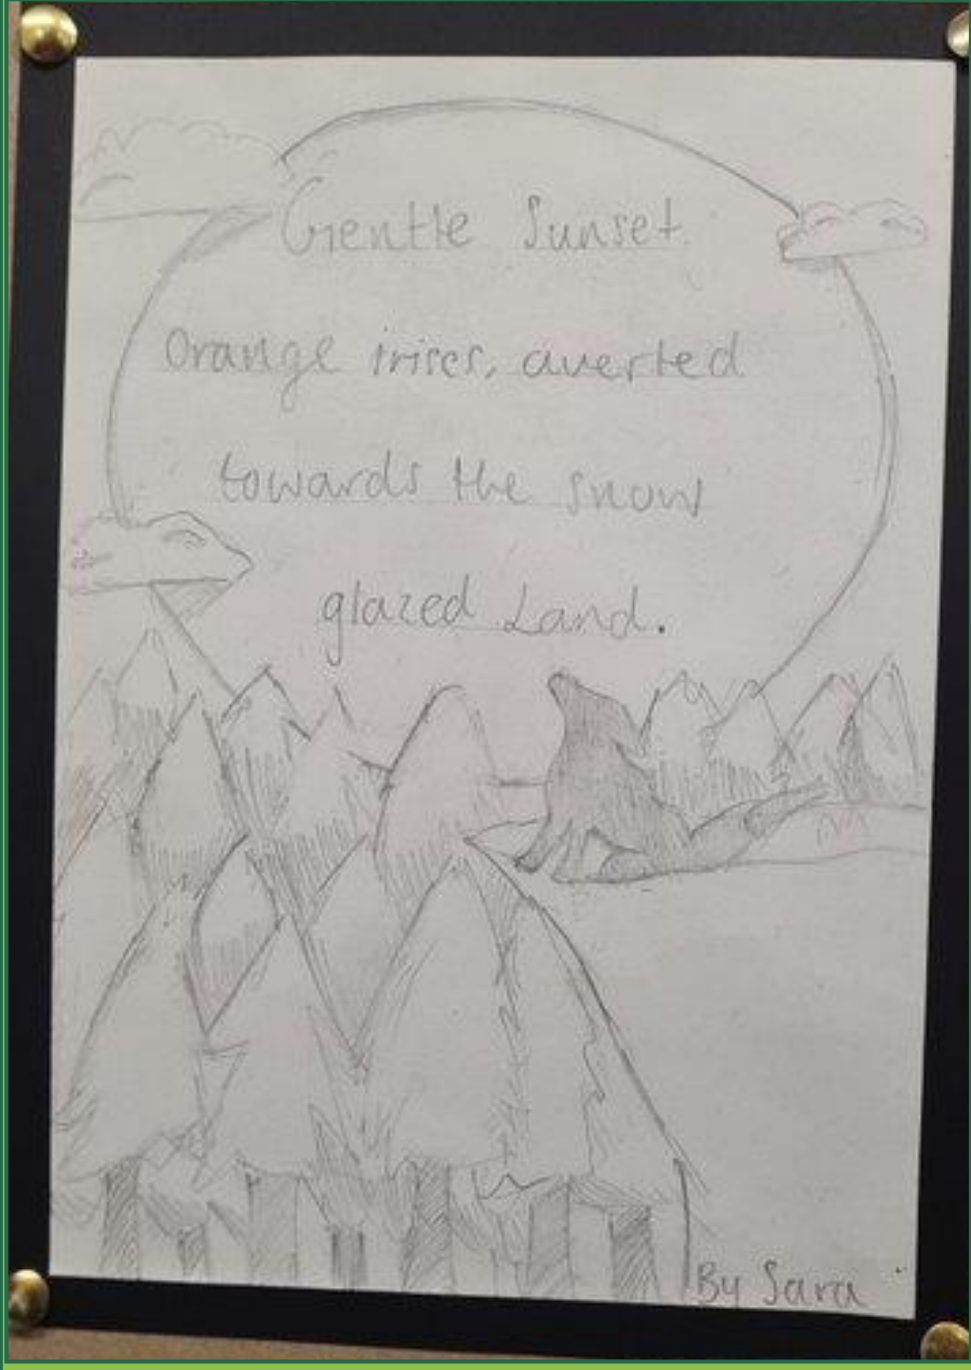 Gentle Sunset
Orange irises, averted
towards the snow
glazed Land.
By Sara